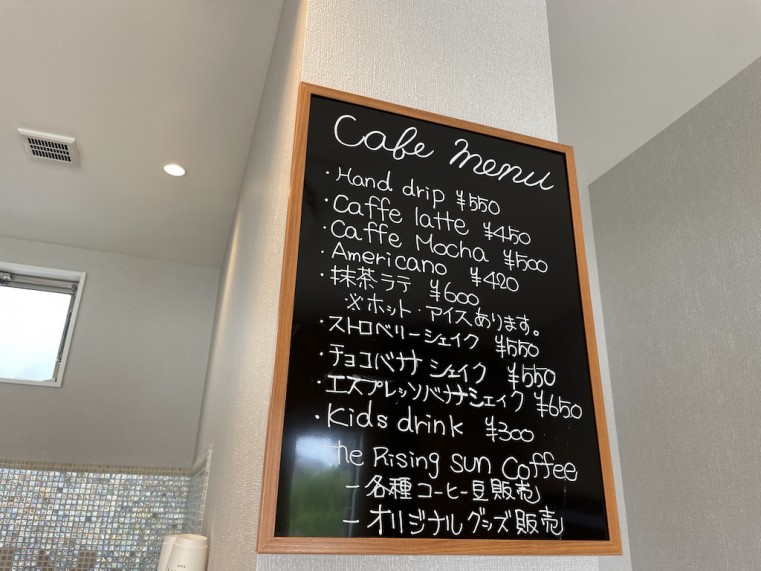 Cafe menu
・Hand drip ¥550
・Caffe latte ¥450
・Caffe Mocha ¥500
・Americano ¥420
・抹茶ラテ ¥600
※ホット・アイスあります。
・ストロベリーシェイク ¥550
・チョコバナナシェイク ¥550
・エスプレッソバナナシェイク ¥650
・Kids drink ¥300
The Rising Sun Coffee
－各種コーヒー豆販売
－オリジナルグッズ販売